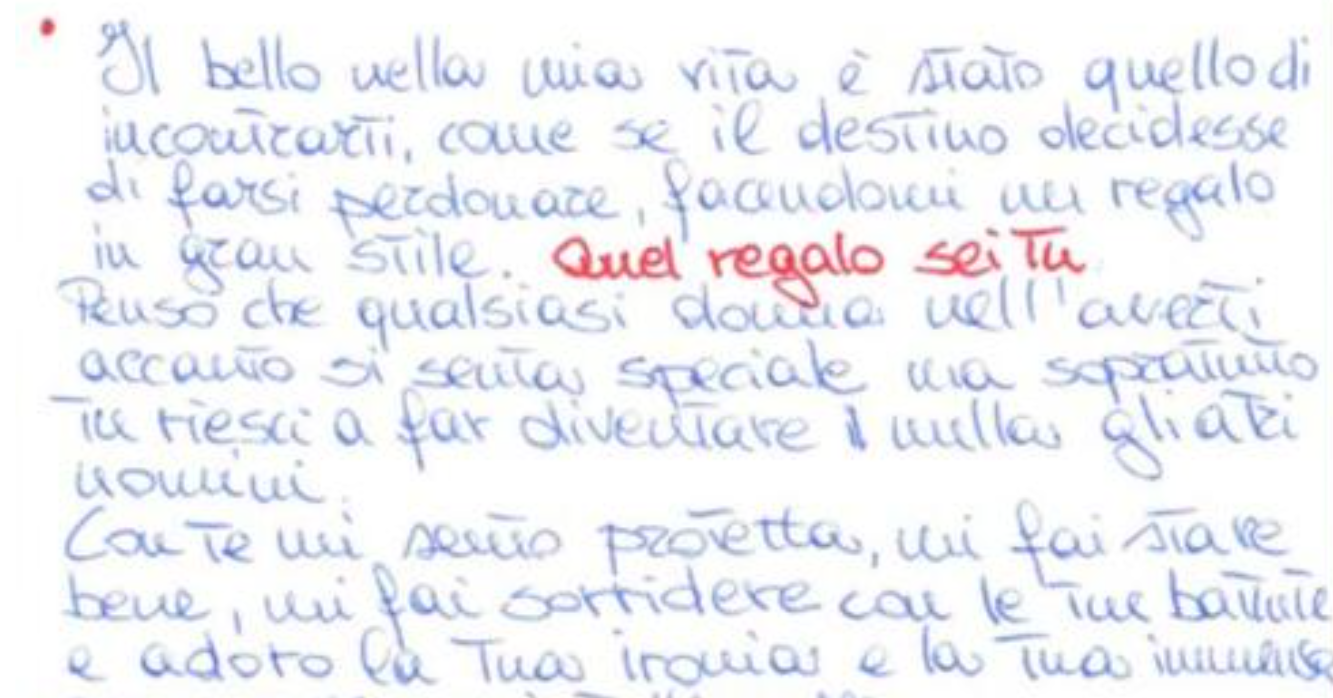 • Il bello nella mia vita è stato quello di
incontrarti, come se il destino decidesse
di farsi perdonare, facendomi un regalo
in gran stile. Quel regalo sei Tu
Penso che qualsiasi donna nell'averti
accanto si senta speciale ma sopratutto
tu riesci a far diventare nulla gli altri
uomini.
Con Te mi sento protetta, mi fai stare
bene, mi fai sorridere con le tue battute
e adoro la Tua ironia e la Tua immensa